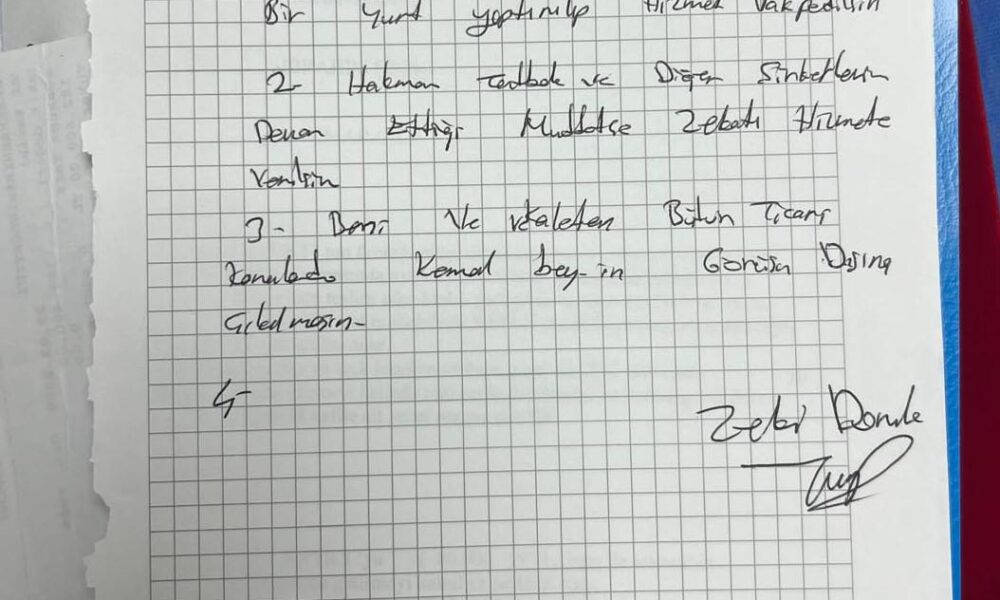 Bir Yurt yaptırılıp Hizmet Vakfedilsin
2- Hakman ve Diğer Şirketlerin
Devam Ettiği Müddetçe Zekatı Hizmete
Verilsin
3- Beni Ve vekaleten Bütün Ticari
Konularda Kemal bey-in Görüşü Dışına
Çıkılmasın-
4-
Zeki